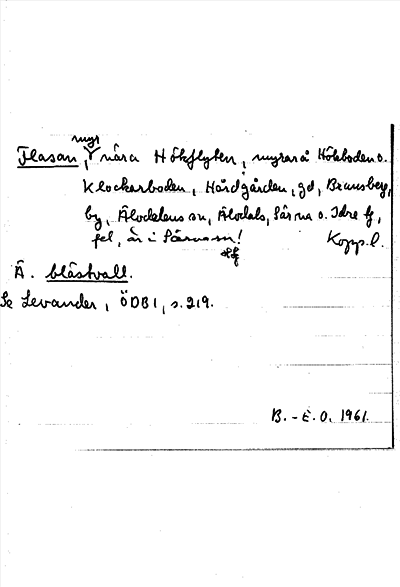 myr
Flasan, Y nära Hökflyten, myrarå Hökboden o.
Klockarboden, Hårdgården, gd, Brunsberg,
by, Älvdalens sn, Älvdals, Särna o. Idre tg,
fel, är i Särna sn! Kopp. l.
Ä. blåstvall.
Se Levander, ÖDB I, s. 219.
B. - E. O. 1961.